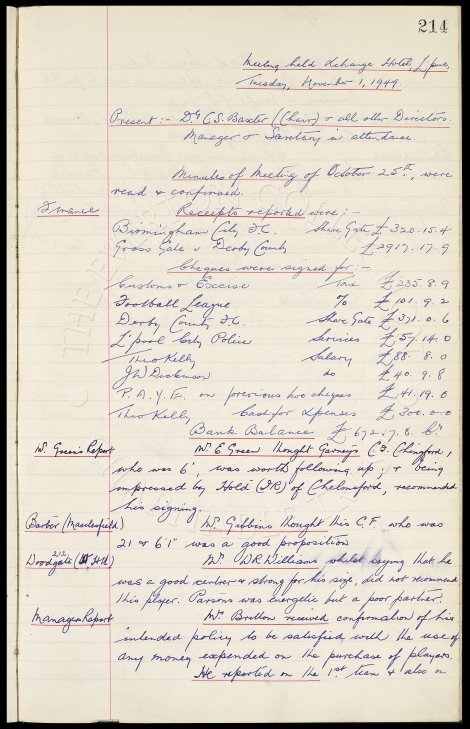 214
Meeting held Exchange Hotel, L'pool,
Tuesday, November 1, 1949.
Present:- Dr. C.S. Baxter (Chair) & all other Directors.
Manager & Secretary in attendance.
Minutes of Meeting of October 25th, were
read & confirmed.
Finance Receipts reported were:-
Birmingham City F.C. Share Gate £320.15.4
Gross Gate v Derby County £2917.17.9
Cheques were signed for:-
Customs & Excise Tax £235.8.9
Football League % £101.9.2
Derby County F.C. Share Gate £371.0.6
L'pool City Police Services £57.14.0
Theo Kelly Salary £88.8.0
J.W. Dickinson do £40.9.8
P.A.Y.E. on previous two cheques £41.19.0
Theo Kelly Cash for Xpenses £300.0.0
Bank Balance £672.7.8 Cr.
Mr. Green's Report Mr. E Green thought Garvey's C.F. Chingford,
who was 6', was worth following up: & being
impressed by Hold (I.R) of Chelmsford, recommended
his signing.
Barber (Macclesfield) Mr. Gibbins thought this C.F. who was
21 & 6'1" was a good proposition
Woodgate Mr. D.R. Williams whilst saying that he
was a good venturer & strong for his size, did not recommend
this player. Parsons was energetic but a poor partner.
Managers Report Mr. Britton received confirmation of his
intended policy to be satisfied with the use of
any money expended on the purchase of players.
He reported on the 1st team & also on